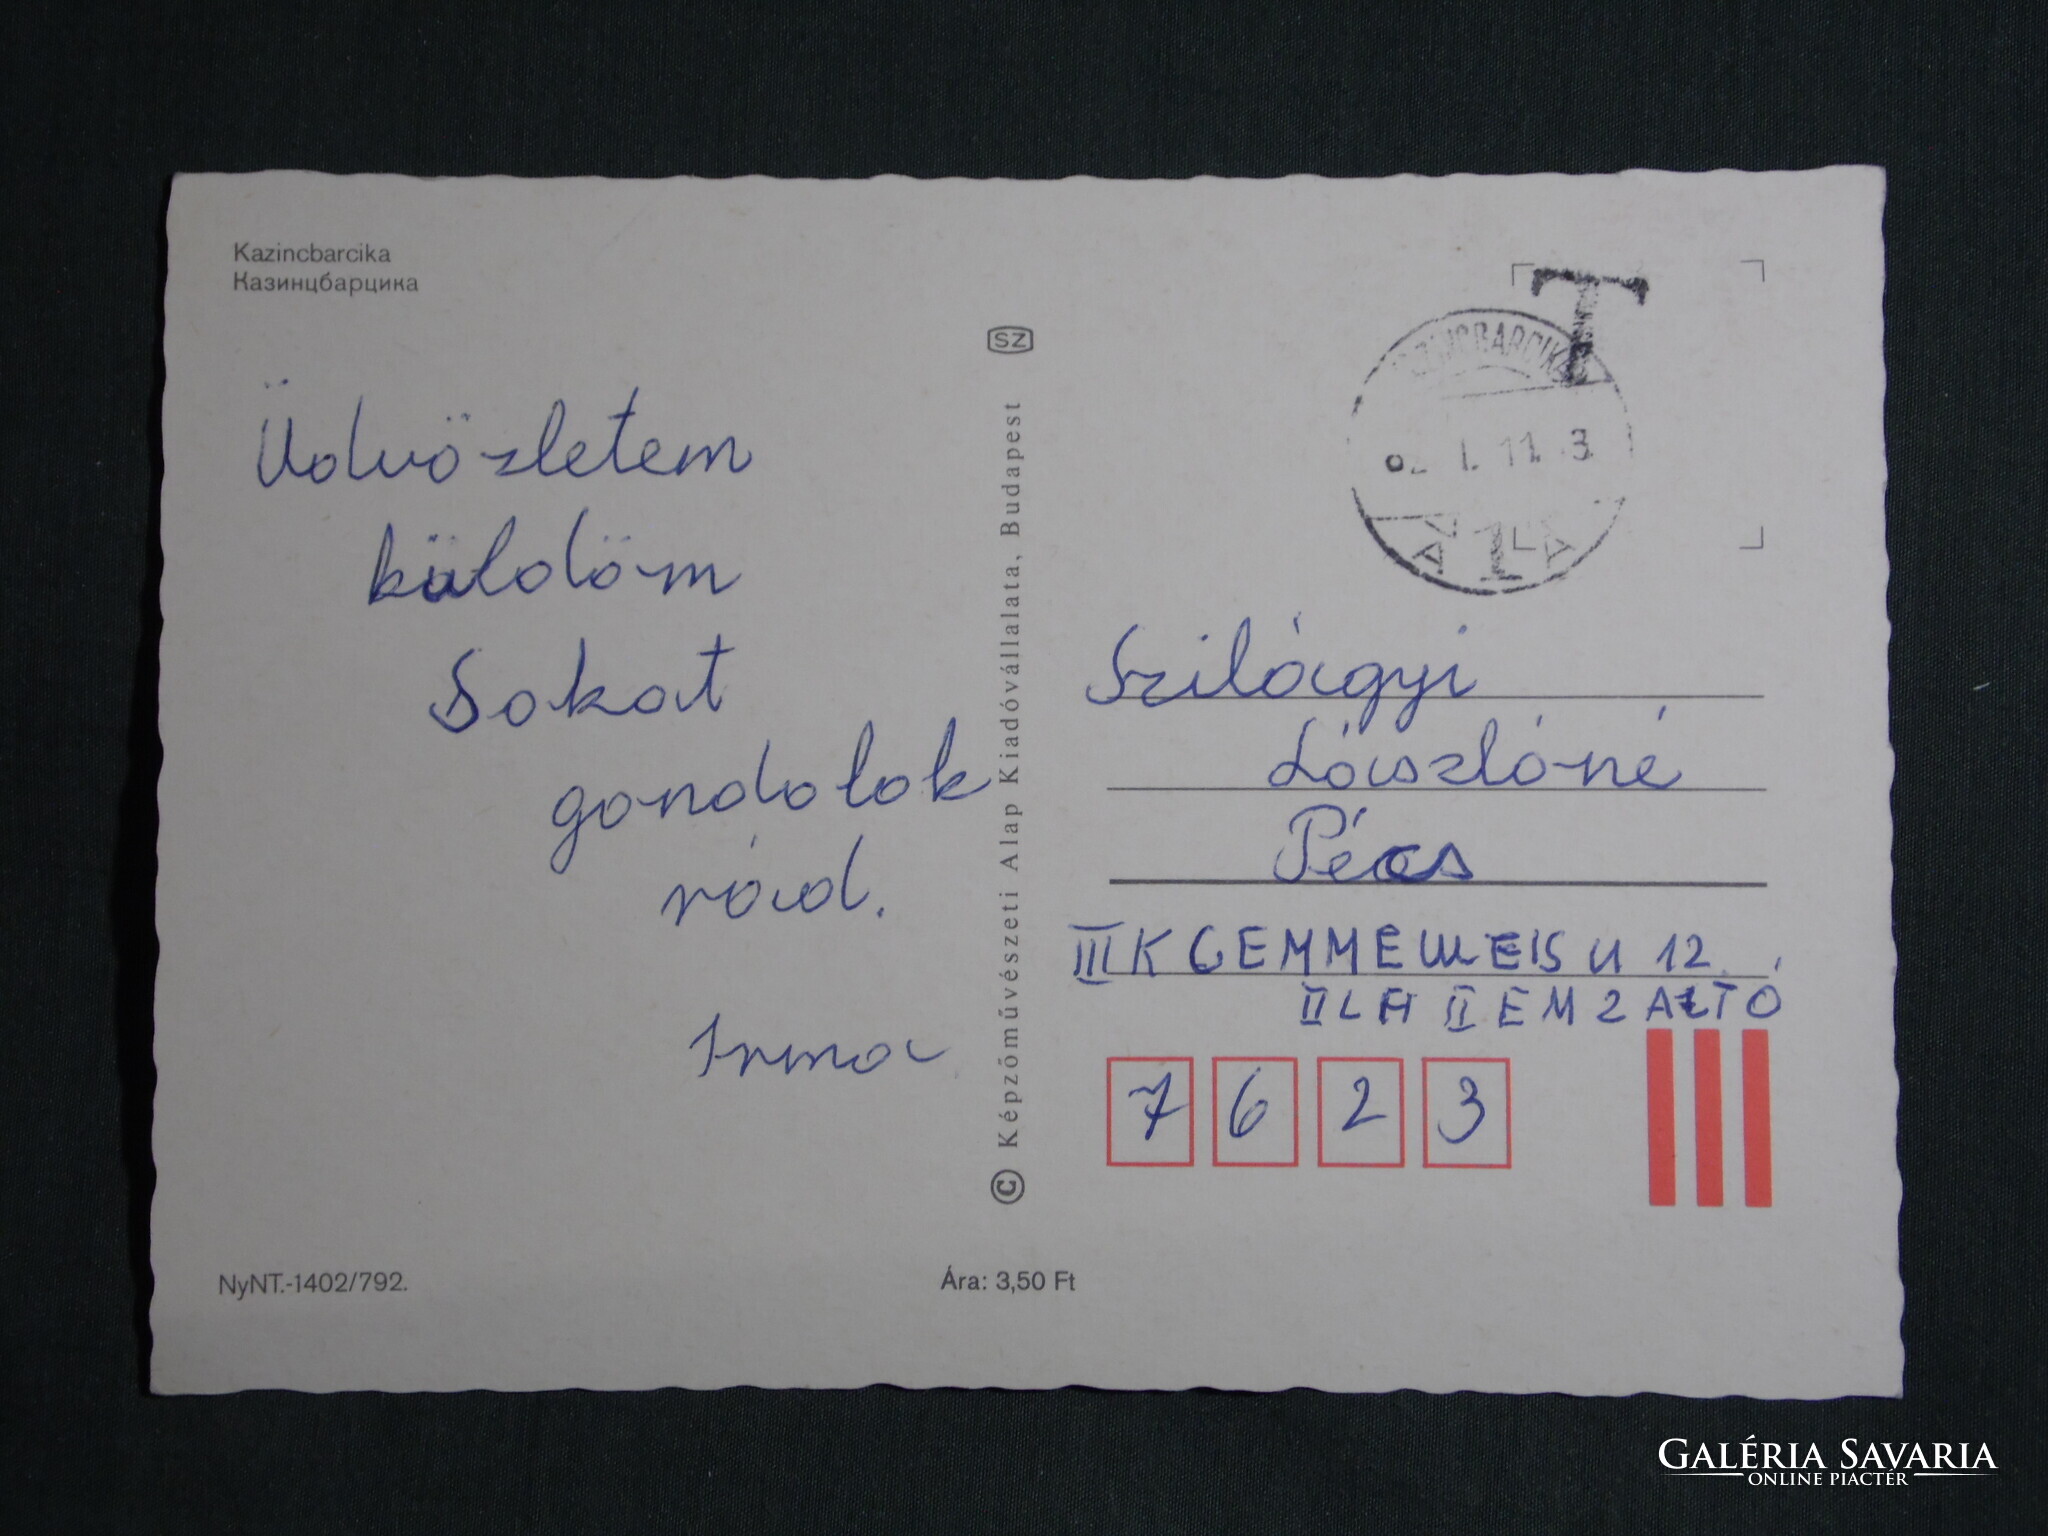 Kazincbarcika
Казинцбарцика
Üdvözletem
küldöm
Sokat
gondolok
rád.
Irma
NyNT.-1402/792.
SZ
© Képzőművészeti Alap Kiadóvállalata, Budapest
Ára: 3,50 Ft
T
1. 11. 3
1
Szilágyi
Lászlóné
Pécs
III K GEMMEWEIS U 12
II LH II EM 2 AJTÓ
7 6 2 3
GALÉRIA SAVARIA
ONLINE PIACTÉR